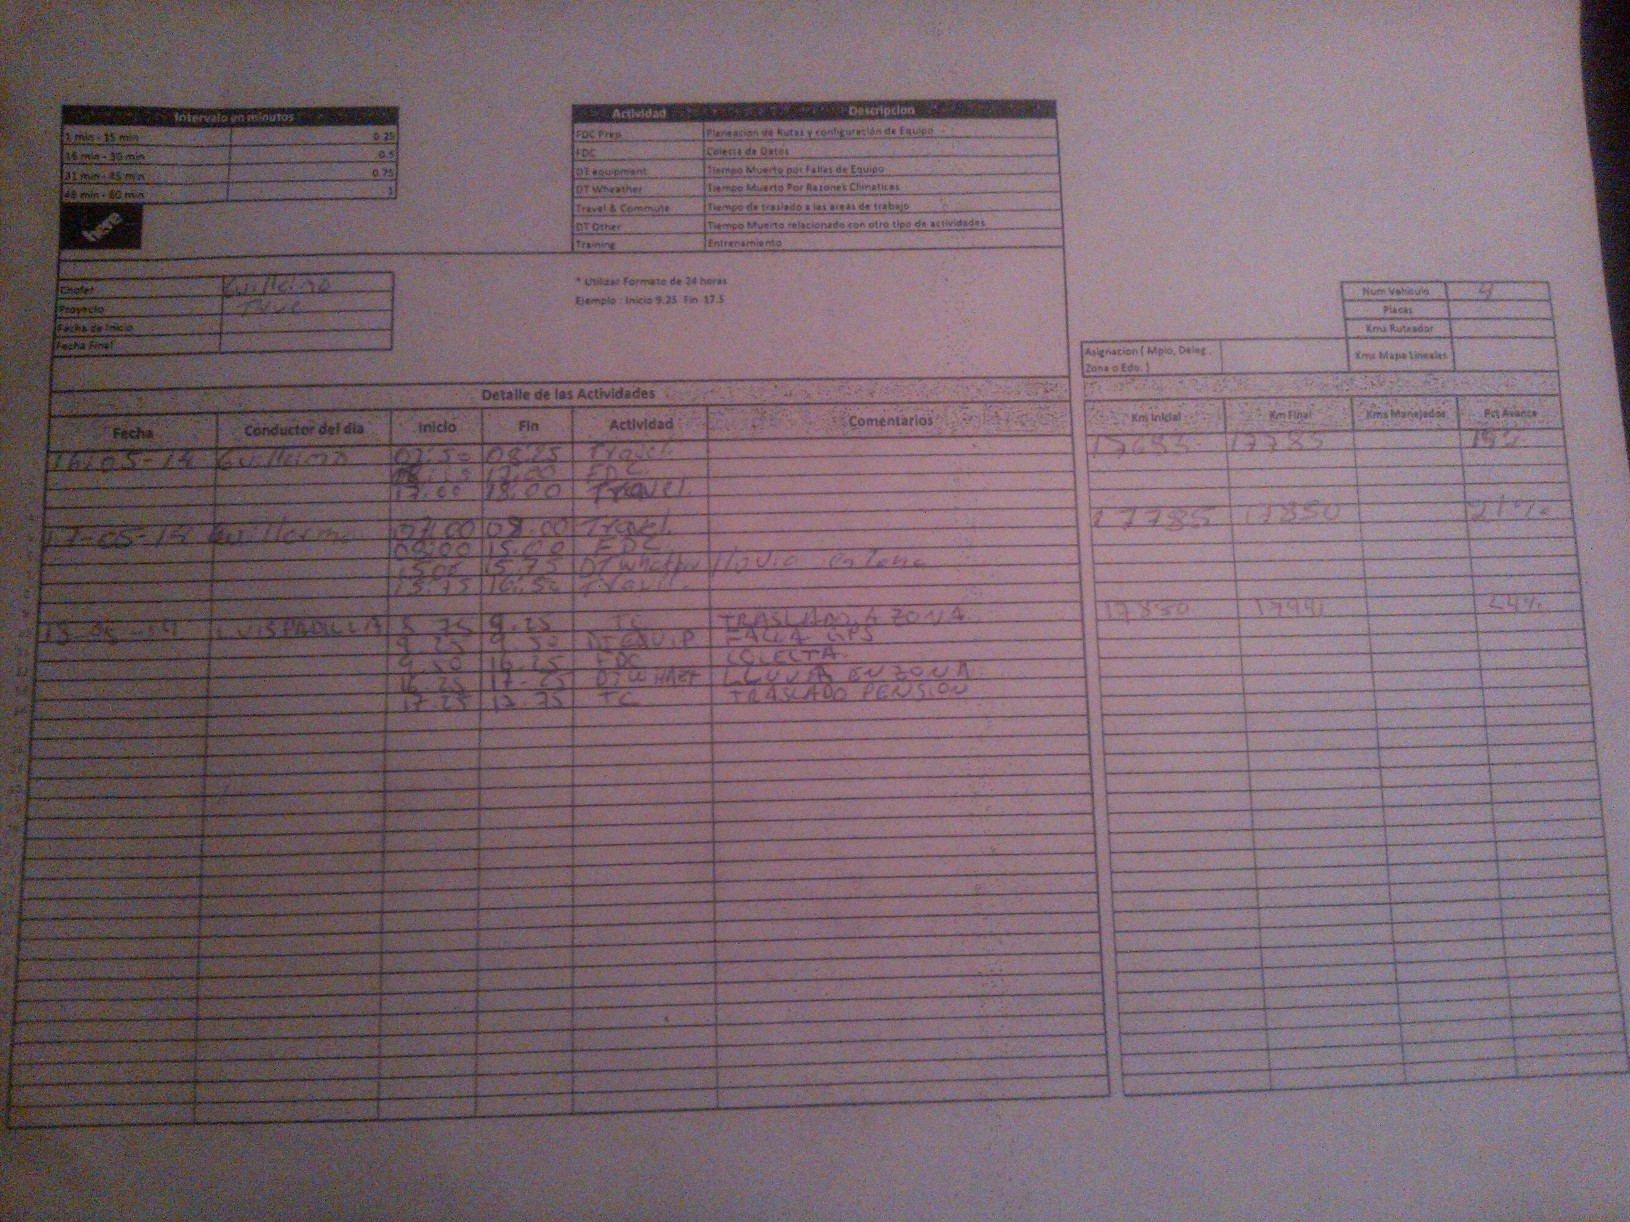 Intervalo en minutos
1 min - 15 min 0.25
16 min - 30 min 0.5
31 min - 45 min 0.75
46 min - 60 min 1
here
Actividad Descripcion
FDC Prep Planeacion de Rutas y configuración de Equipo
FDC Colecta de Datos
DT equipment Tiempo Muerto por Fallas de Equipo
DT Wheather Tiempo Muerto Por Razones Climaticas
Travel & Commute Tiempo de traslado a las areas de trabajo
DT Other Tiempo Muerto relacionado con otro tipo de actividades
Training Entrenamiento
Chofer Guillermo
Proyecto True
Fecha de Inicio
Fecha Final
* Utilizar Formato de 24 horas
Ejemplo : Inicio 9.25 Fin 17.5
Num Vehiculo 4
Placas
Kms Ruteador
Asignacion ( Mpio, Deleg, Kms Mapa Lineales
Zona o Edo. )
Detalle de las Actividades
Fecha Conductor del dia Inicio Fin Actividad Comentarios Km Inicial Km Final Kms Manejados Pct Avance
16-05-14 Guillermo 07:50 08:25 Travel 17785
17:00 FDC
17:00 18:00 Travel
17-05-14 Guillermo 07:00 08:00 Travel 17785 17850 21%
08:00 15:00 FDC
15:00 15.75 DT lluvia en zona
15.75 16:50 Travel
LUIS PADILLA 8.75 9.25 TC TRASLADO A ZONA 17850
9.25 9.50 DT EQUIP FALLA GPS
9.50 16.25 FDC COLECTA
16.25 17.25 LLUVIA EN ZONA
17.25 17.75 TC TRASLADO PENSION